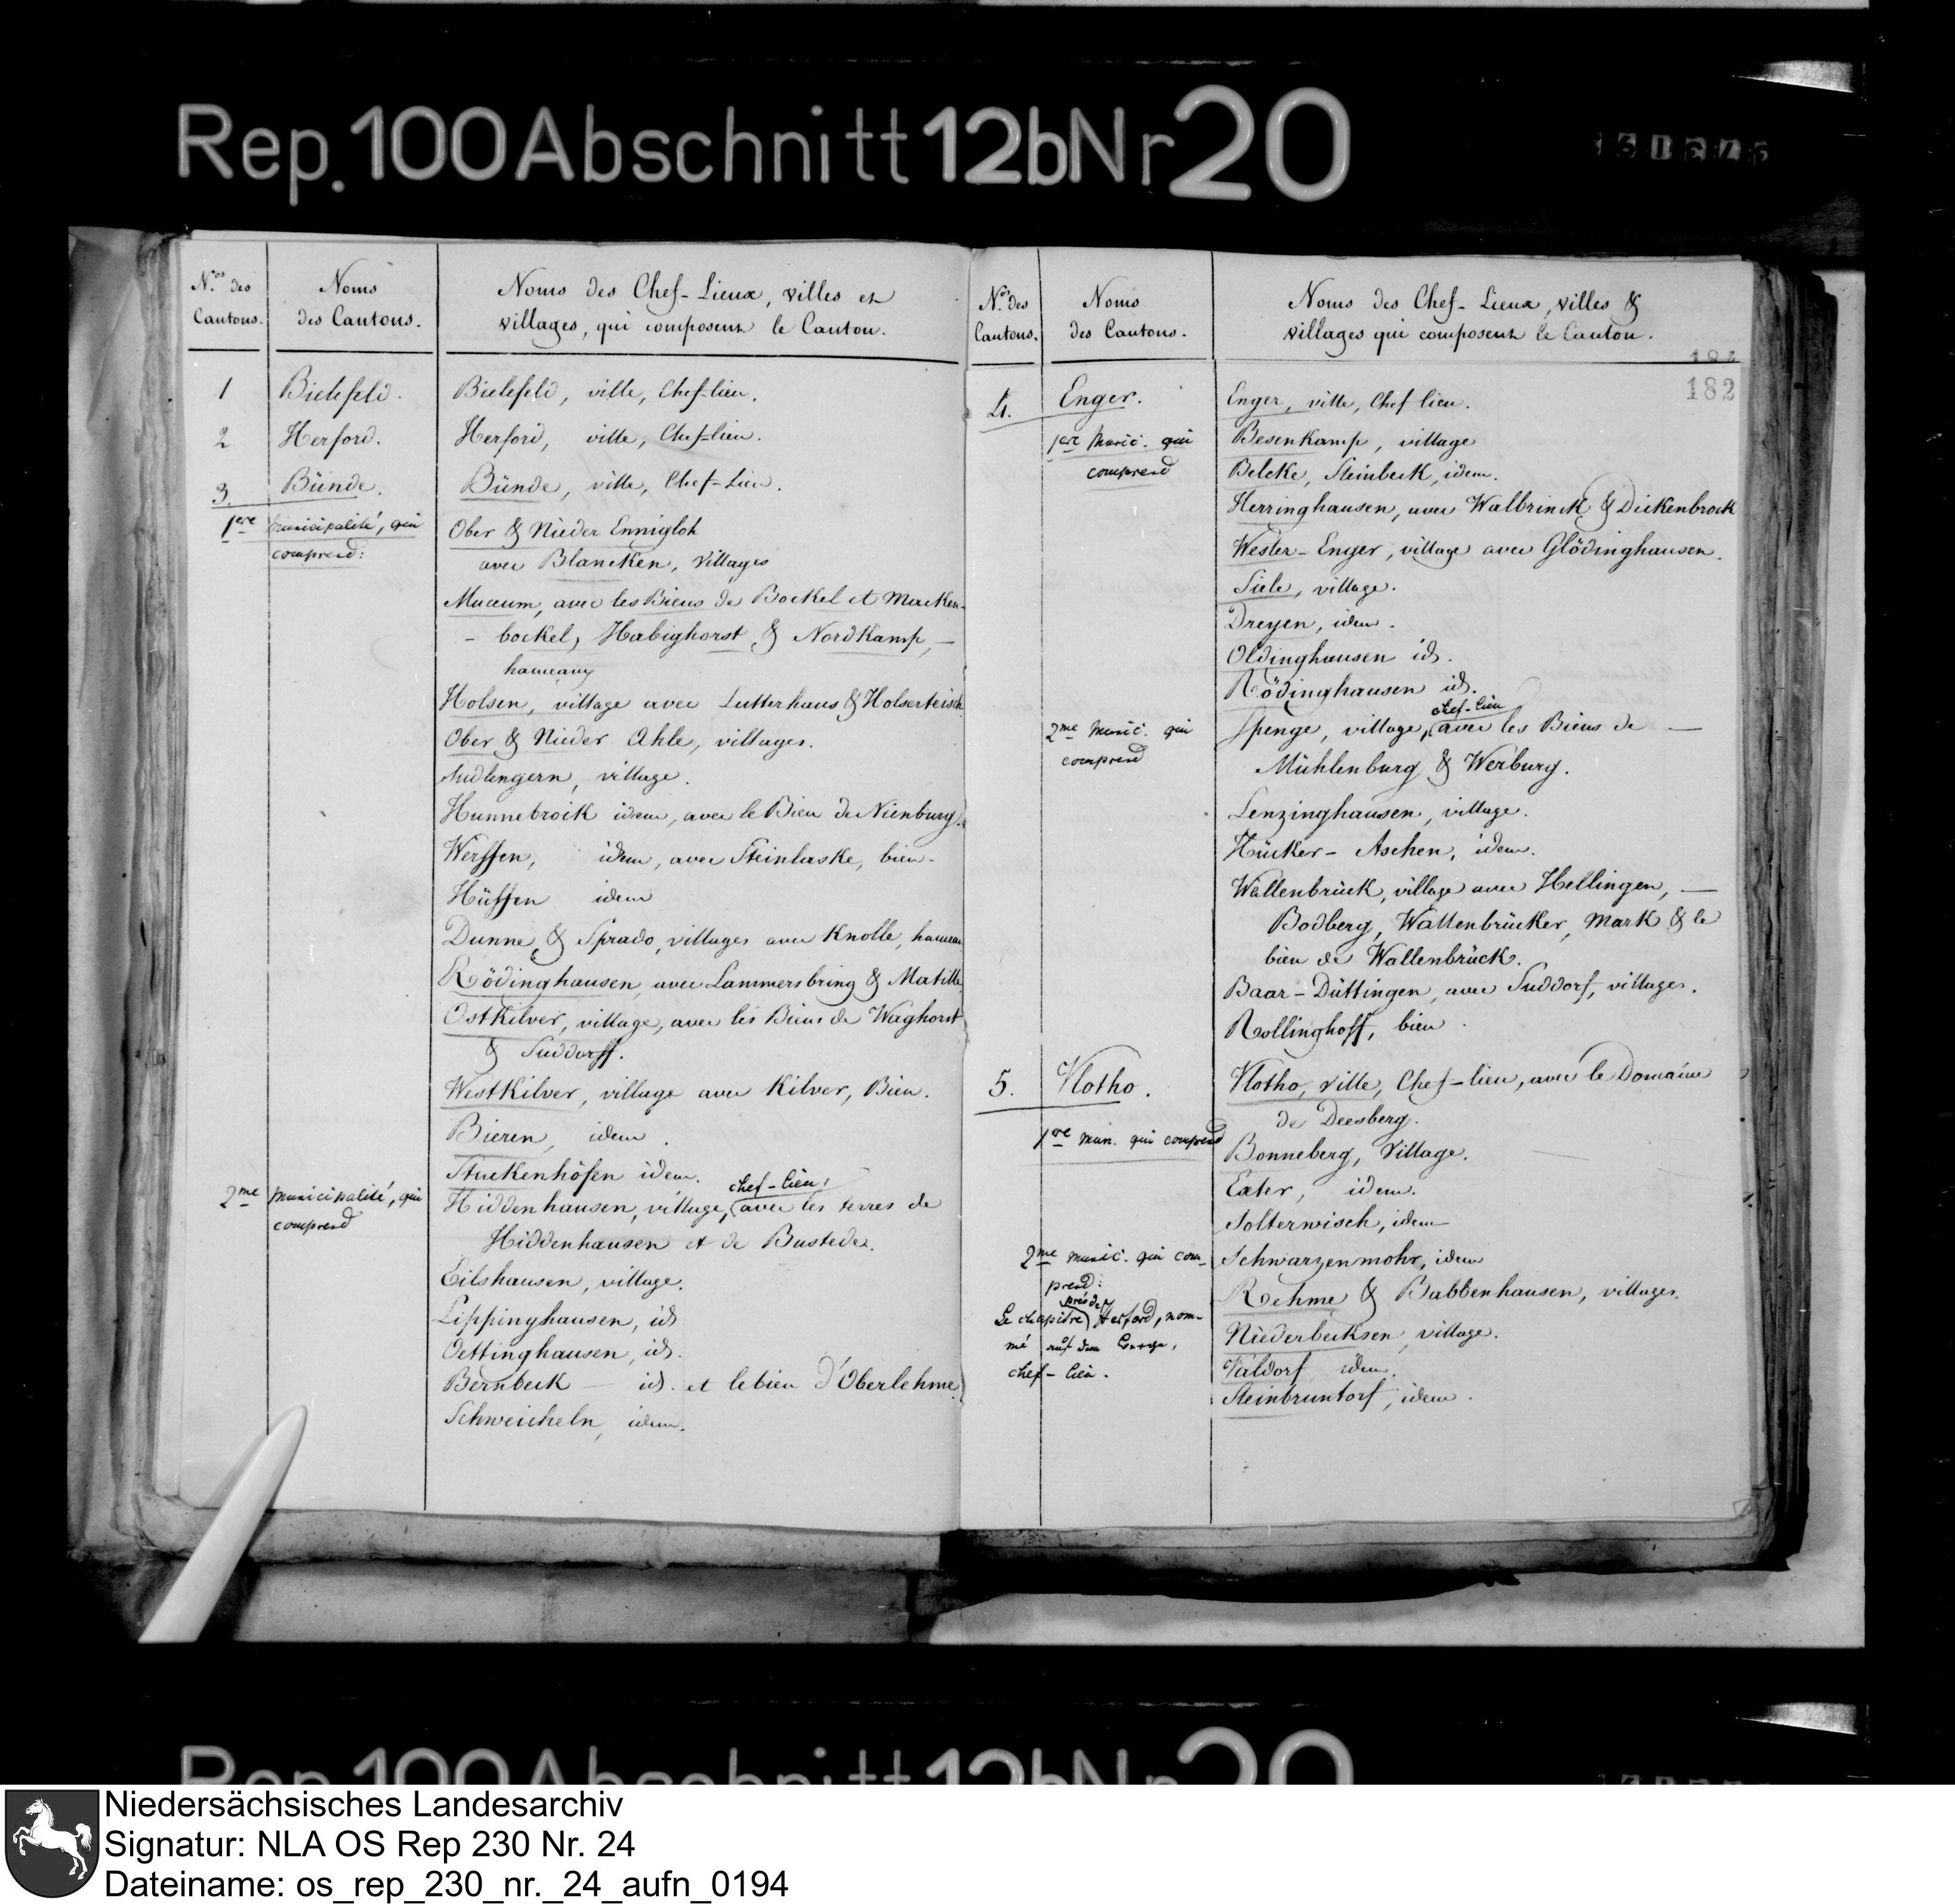 Rep. 100 Abschnitt 12b Nr 20
N.os des Cantons.
Noms des Cantons.
Noms des Chef-Lieux, villes et
villages, qui composent le Canton.
1 Bielefeld. Bielefeld, ville, Chef-lieu.
2 Herford. Herford, ville, Chef-lieu.
3. Bünde. Bünde, ville, Chef-Lieu.
1ere municipalité, qui
comprend:
Ober & Nieder Ennigloh
avec Blancken, Villages
Muccum, avec les Biens de Bockel et Mucken-
- bockel, Habighorst & Nordkamp, —
hameaux
Holsen, village avec Lutterhaus & Holserteisch
Ober & Nieder Ahle, villages.
Sudlengern, village.
Hunnebrock idem, avec le Bien de Nienburg.
Werffen, idem, avec Steinlaske, bien.
Hüffen idem
Dunne & Sprado, villages avec Knolle, hameau
Rödinghausen, avec Lammersbring & Matille
Ostkilver, village, avec les Biens de Waghorst
& Suddorff.
Westkilver, village avec Kilver, Bien.
Bieren, idem.
Stuckenhöfen idem.
2me municipalité, qui
comprend
chef-lieu,
Hiddenhausen, village, avec les terres de
Hiddenhausen et de Bustede.
Eilshausen, village.
Lippinghausen, id
Oettinghausen, id.
Bernbeck — id. et le bien d'Oberlehme
Schweicheln, idem.
N.os des Cantons.
Noms des Cantons.
Noms des Chef-Lieux, villes &
villages qui composent le Canton.
182
4. Enger. Enger, ville, Chef lieu.
1ere Munic. qui
comprend
Besenkamp, village
Belcke, Steinbeck, idem.
Herringhausen, avec Walbrinck & Dickenbrock
Wester-Enger, village avec Glödinghausen.
Siele, village.
Dreyen, idem.
Oldinghausen id.
Rödinghausen id.
2me Munic. qui
comprend
chef-lieu
Spenge, village, avec les Biens de —
Mühlenburg & Werburg.
Lenzinghausen, village.
Hücker-Aschen, idem.
Wallenbrück, village avec Hellingen, —
Bodberg, Wallenbrücker, Mark & le
bien de Wallenbrück.
Baar-Düttingen, avec Suddorf, villages.
Rollinghoff, bien
5. Vlotho. Vlotho, Ville, Chef-lieu, avec le Domaine
de Deesberg.
1ere mun. qui comprend
Bonneberg, Village.
Exter, idem.
Solterwisch, idem
2me munic. qui com-
prend:
Schwarzenmohr, idem
Rehme & Babbenhausen, villages.
près de
Le chapitre Herford, nom-
mé auf dem Berge,
chef-lieu.
Niederbecksen, village.
Valdorf idem.
Steinbruntorf, idem.
Niedersächsisches Landesarchiv
Signatur: NLA OS Rep 230 Nr. 24
Dateiname: os_rep_230_nr._24_aufn_0194